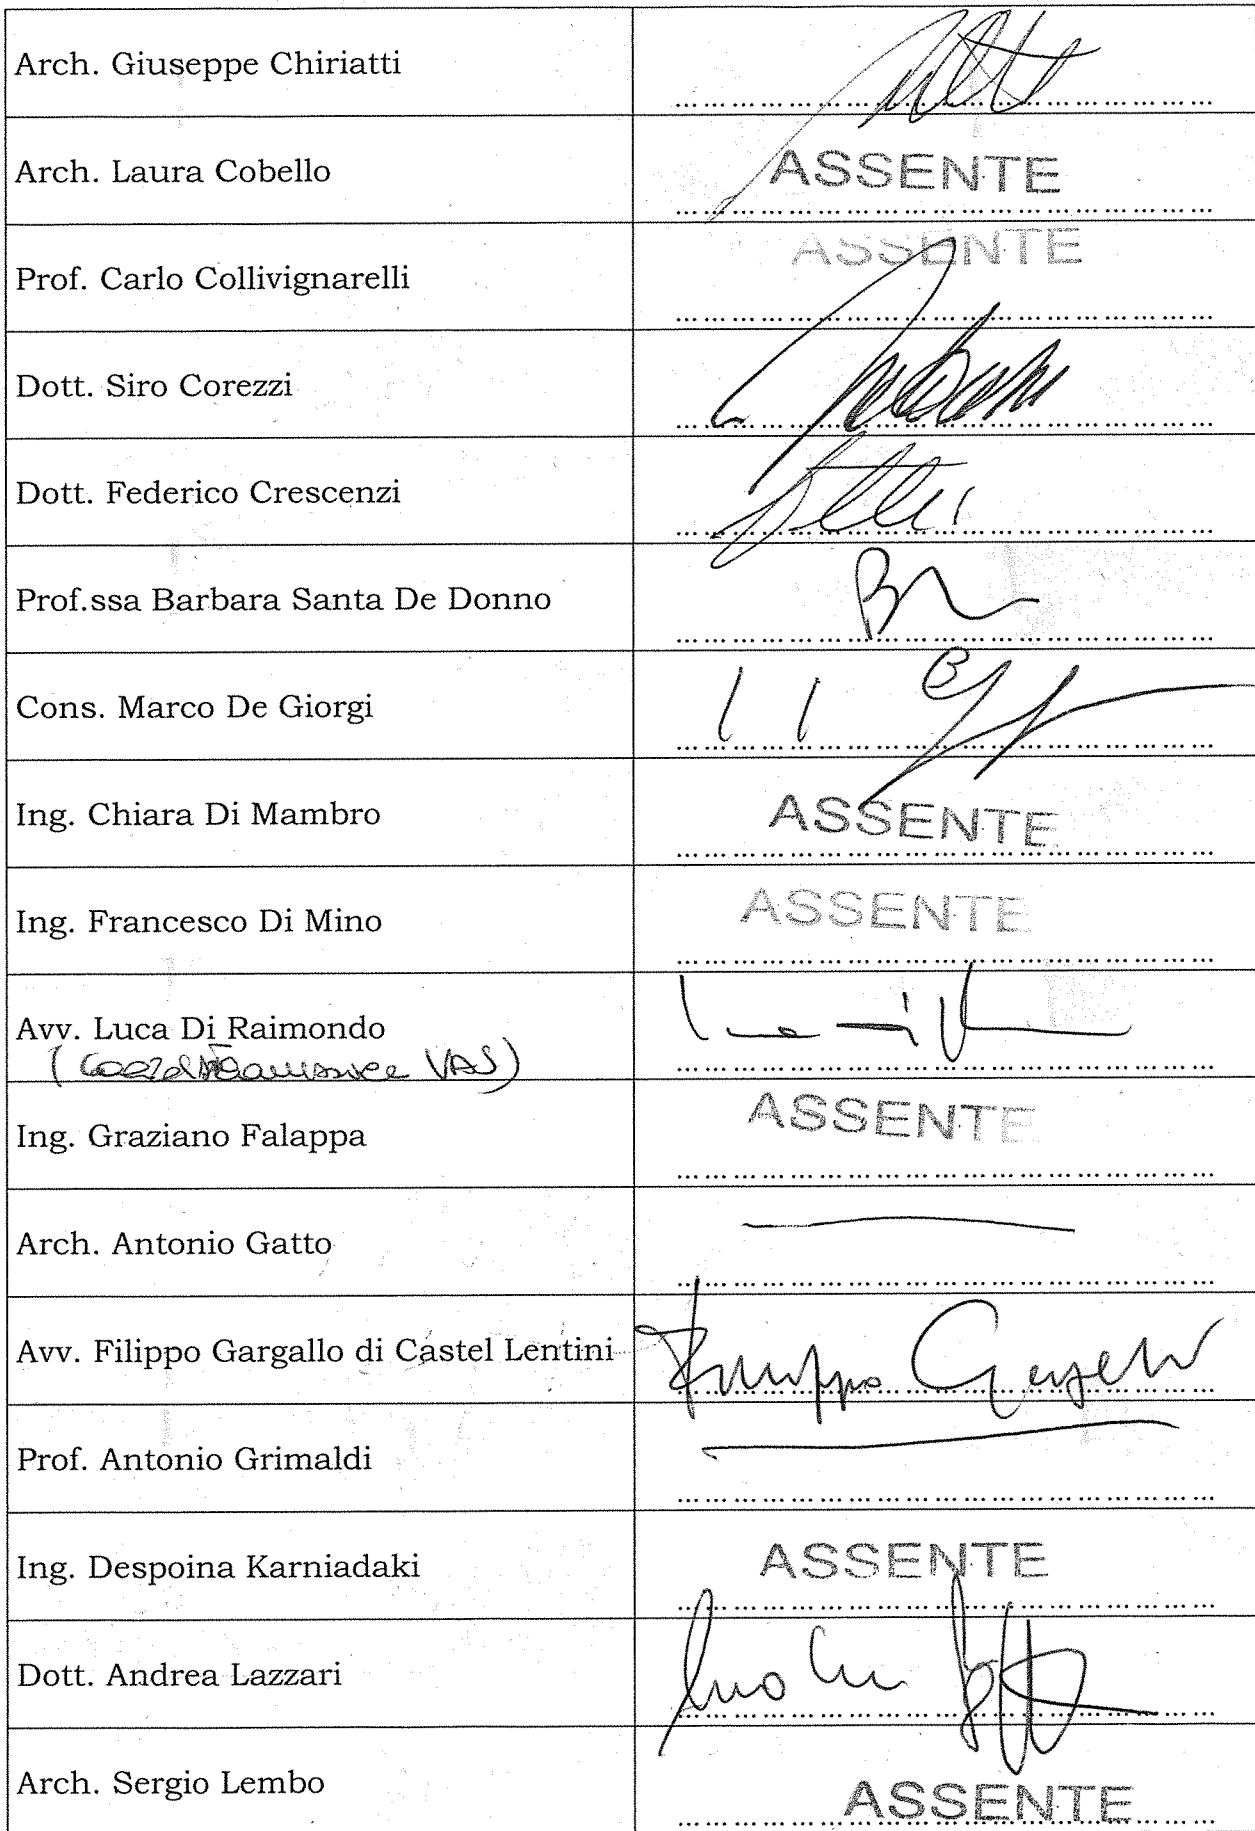 Arch. Giuseppe Chiriatti
Arch. Laura Cobello ASSENTE
Prof. Carlo Collivignarelli ASSENTE
Dott. Siro Corezzi
Dott. Federico Crescenzi
Prof.ssa Barbara Santa De Donno
Cons. Marco De Giorgi
Ing. Chiara Di Mambro ASSENTE
Ing. Francesco Di Mino ASSENTE
Avv. Luca Di Raimondo
VAS)
Ing. Graziano Falappa ASSENTE
Arch. Antonio Gatto
Avv. Filippo Gargallo di Castel Lentini
Prof. Antonio Grimaldi
Ing. Despoina Karniadaki ASSENTE
Dott. Andrea Lazzari
Arch. Sergio Lembo ASSENTE